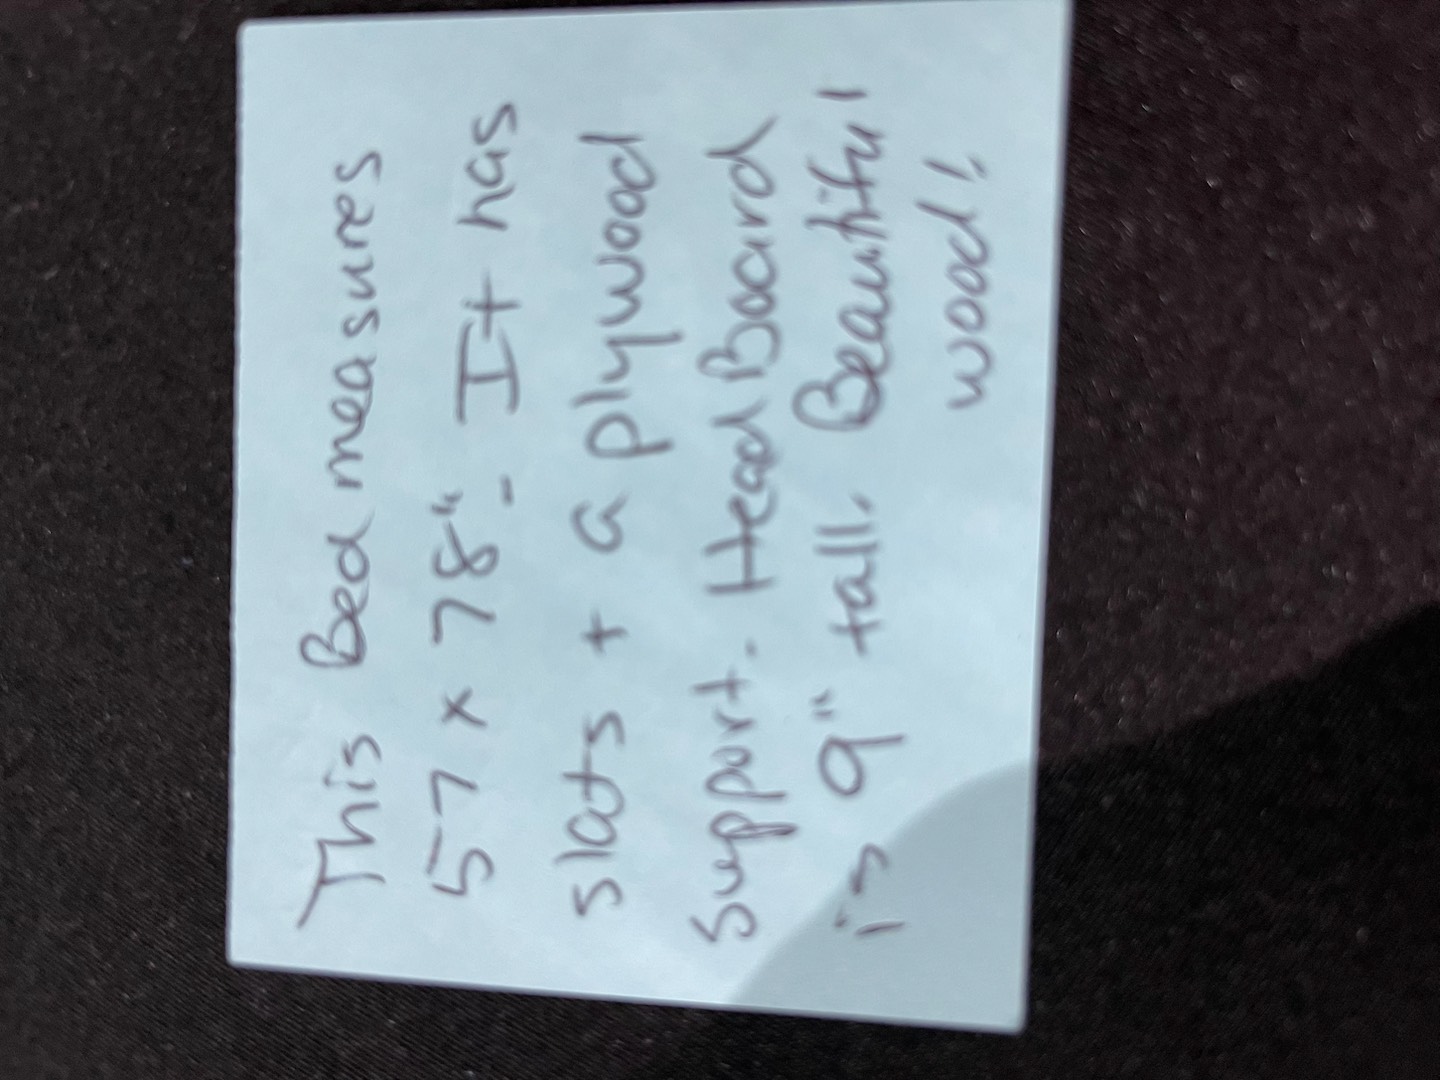 This Bed measures
57 x 78" - It has
slats + a plywood
support. Head Board
is 9" tall. Beautiful
wood!